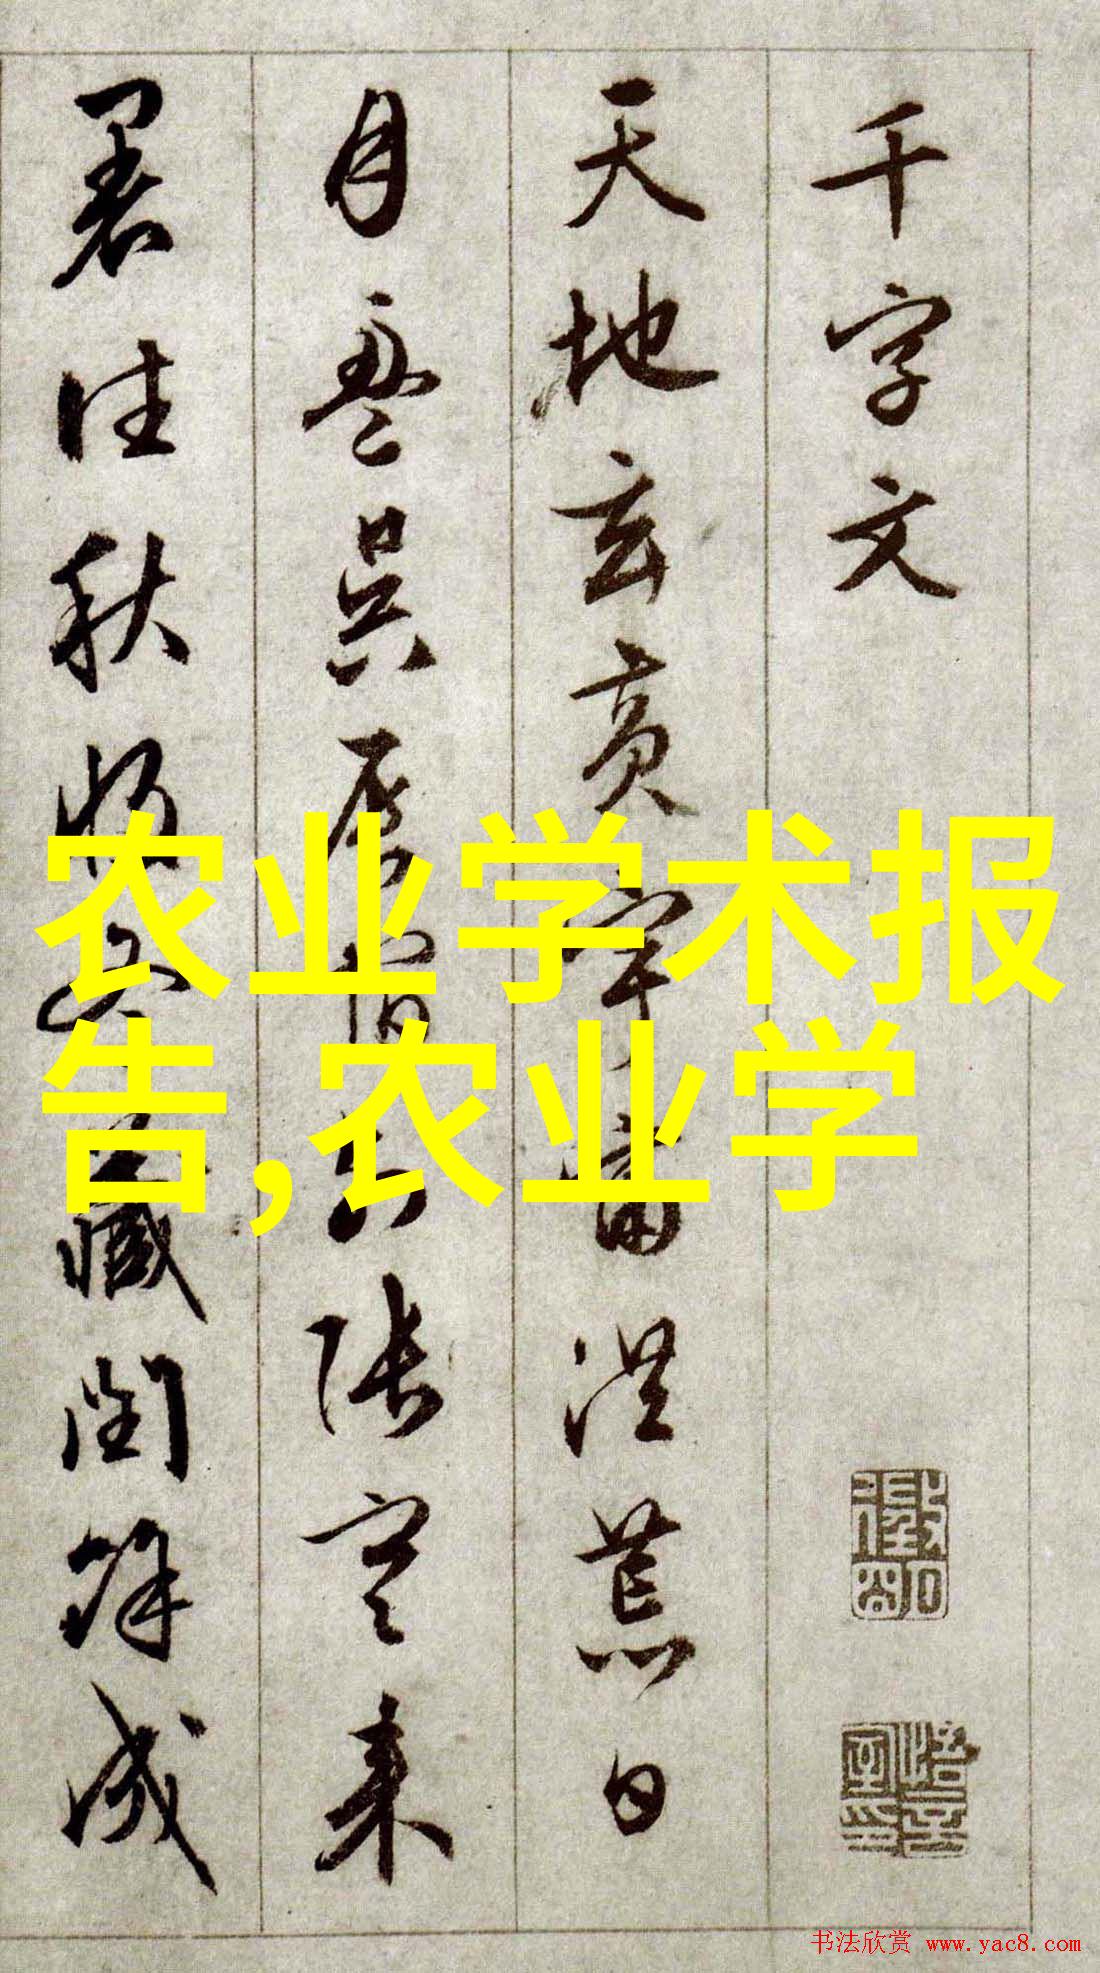 千字文
天地玄黄宇宙洪荒日
月盈昃辰宿列張寒来
暑往秋收冬藏閏餘成
农业学术报
告,农业学
书法欣赏 www.yac8.com